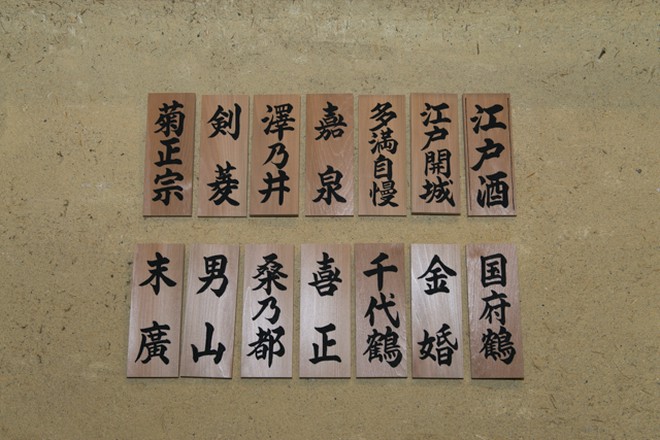 江戸酒
江戸開城
多満自慢
嘉泉
澤乃井
剣菱
菊正宗
国府鶴
金婚
千代鶴
喜正
桑乃都
男山
末廣